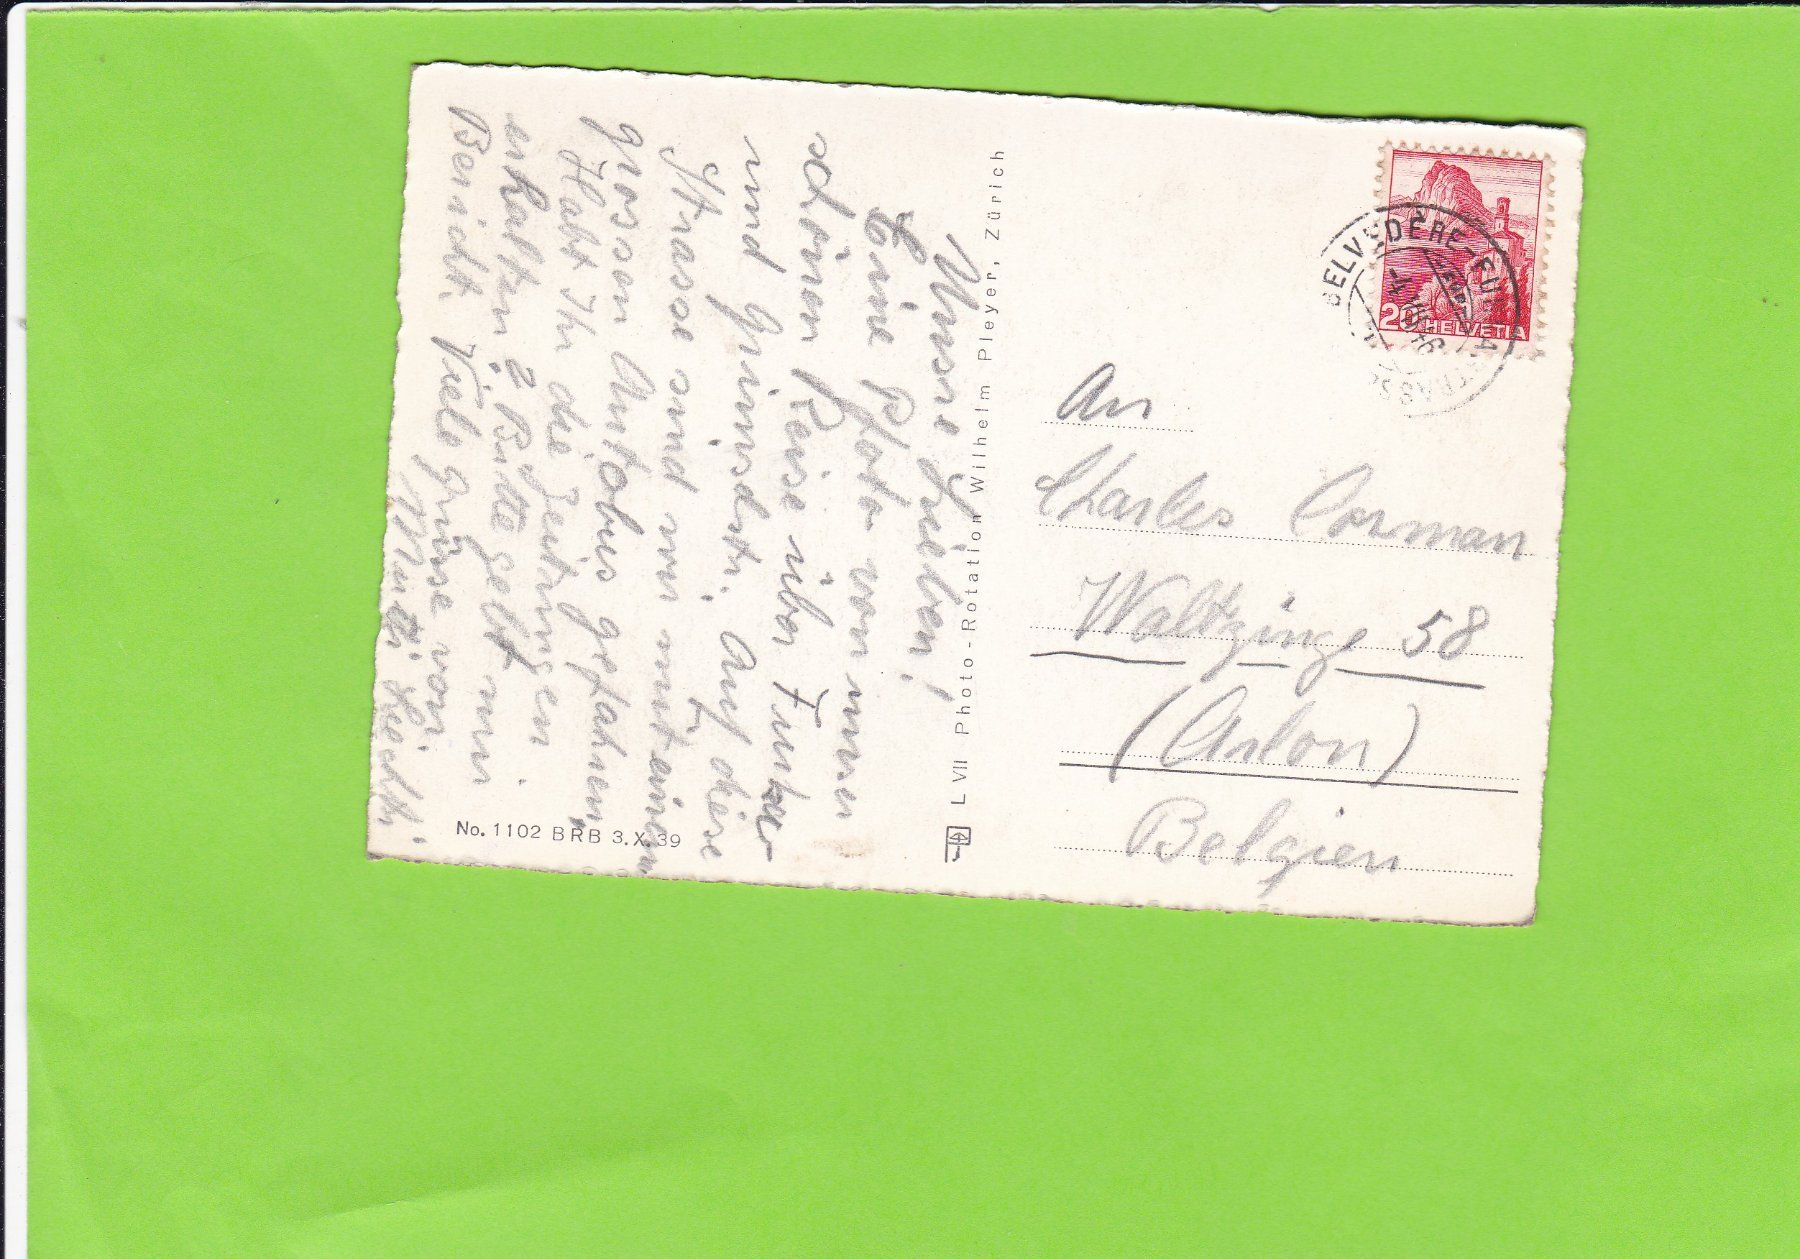 Meine Lieben!
Eine Photo von unser
schönen Reise über Furka-
und Grimseln. Auf diese
Strasse sind wir mit einem
grossen Autobus gefahren,
Habt Ihr die Zeitungen
erhalten? Bitte gebt mir
Bericht. Viele Grüsse von
No. 1102 BRB 3.X.39
L VII Photo-Rotation Wilhelm Pleyer, Zürich
BELVEDERE
20 HELVETIA
An
Charles Corman
Waltzinge 58
(Arlon)
Belgien